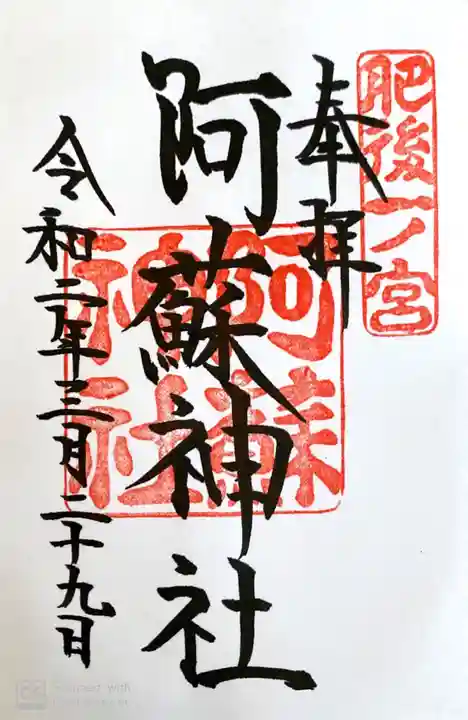 肥後一ノ宮
奉拝
阿蘇神社
阿蘇
神社
令和二年三月二十九日